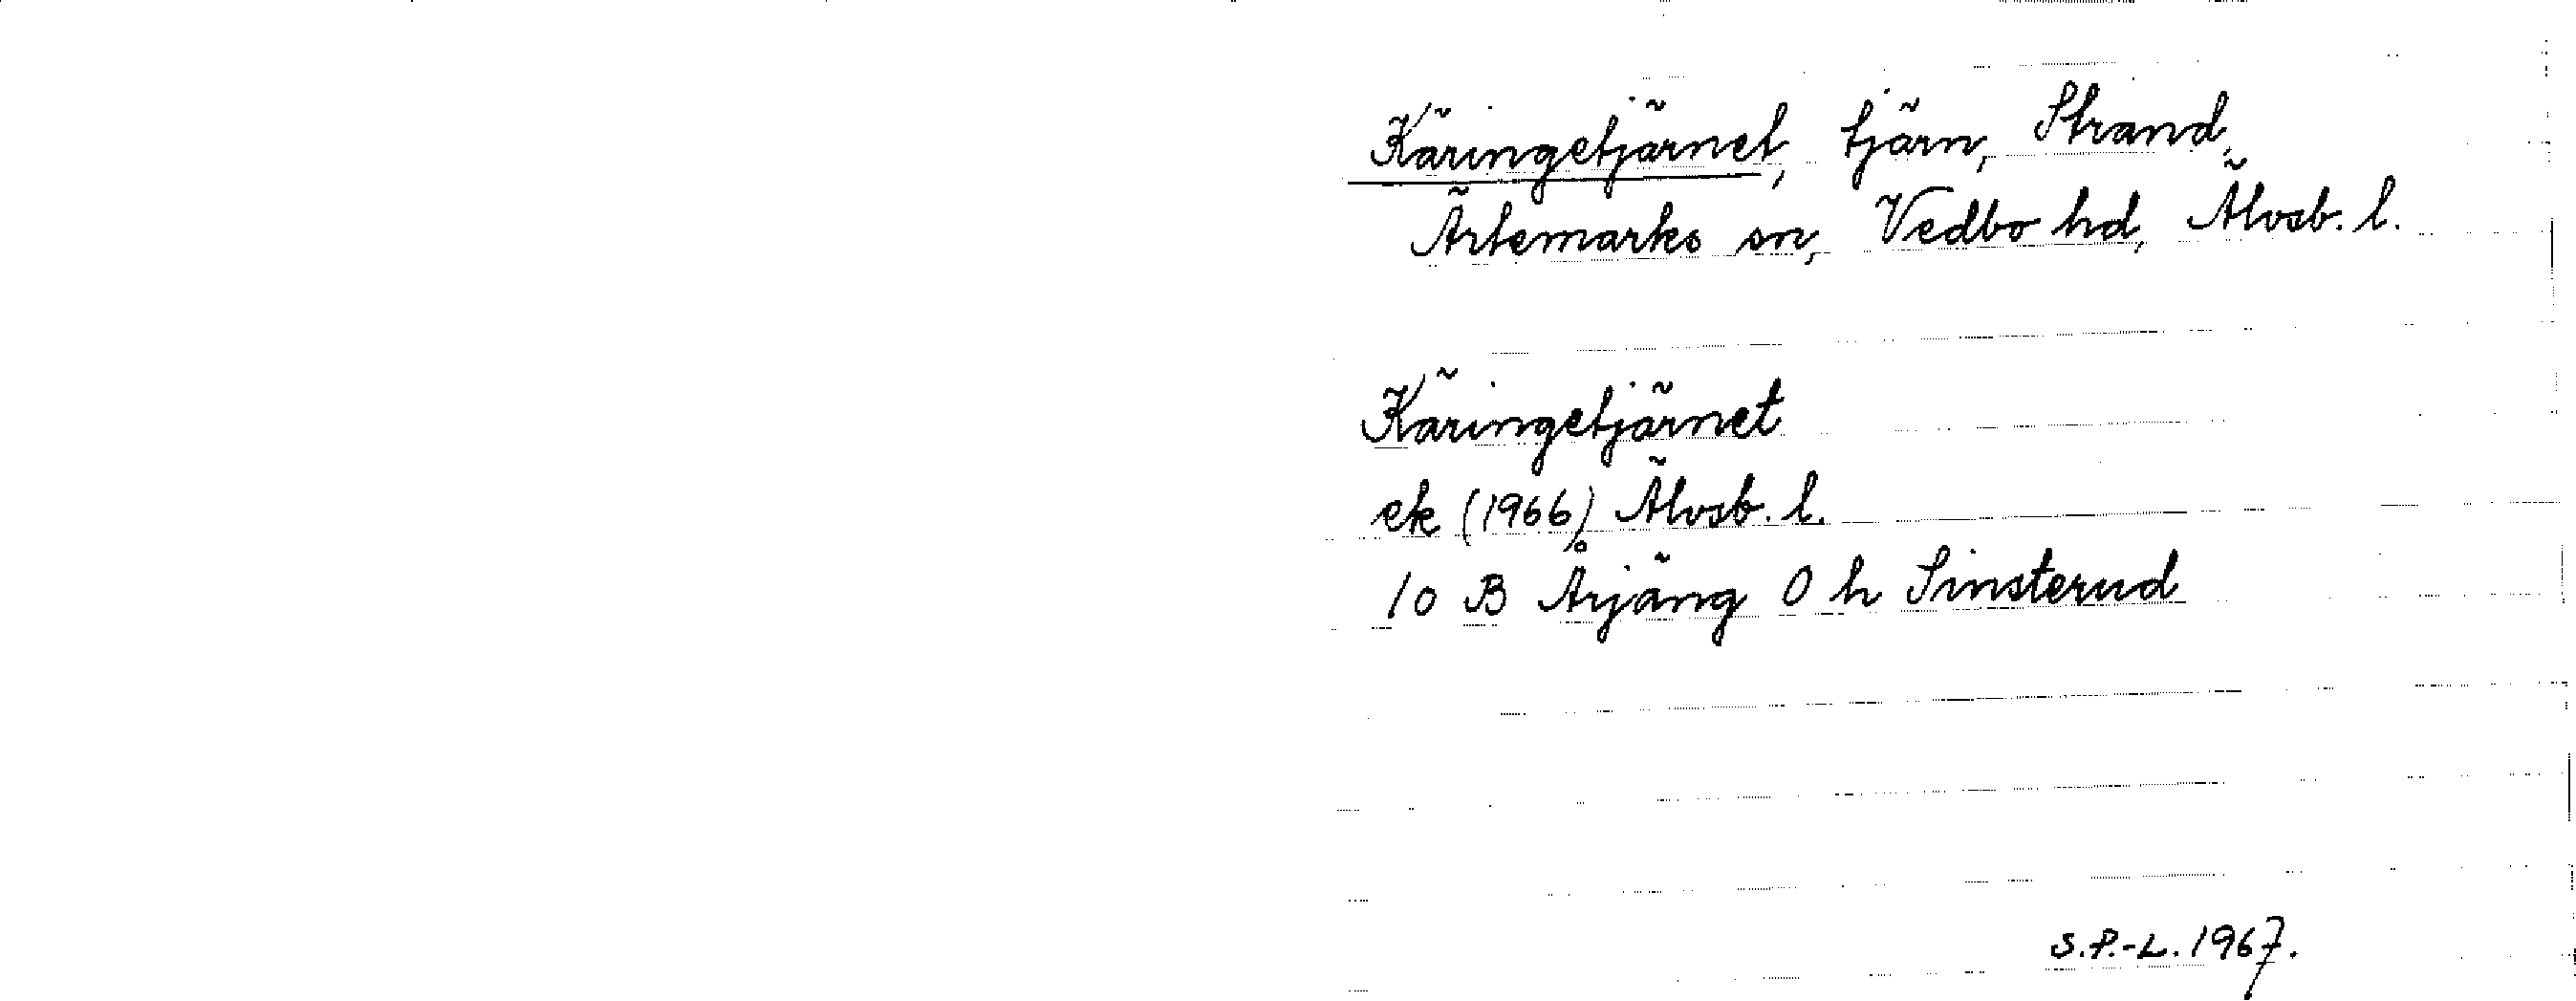 Käringetjärnet, tjärn, Strand,
Ärtemarks sn, Vedbo hd, Älvsb. l.
Käringetjärnet
ek (1966) Älvsb. l.
10 B Årjäng 0 h Sinsterud
S.P.-L. 1967.